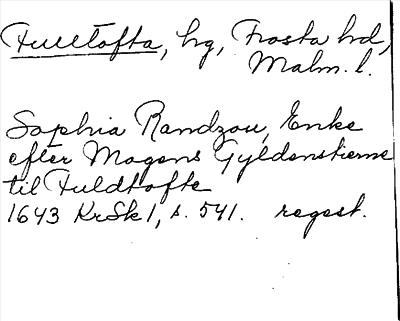 Fulltofta, hg, Frosta hrd,
Malm. l.
Sophia Randzou, Enke
efter Mogens Gyldenstierne
til Fuldtofte
1643 KrSk 1, s. 541. regest.